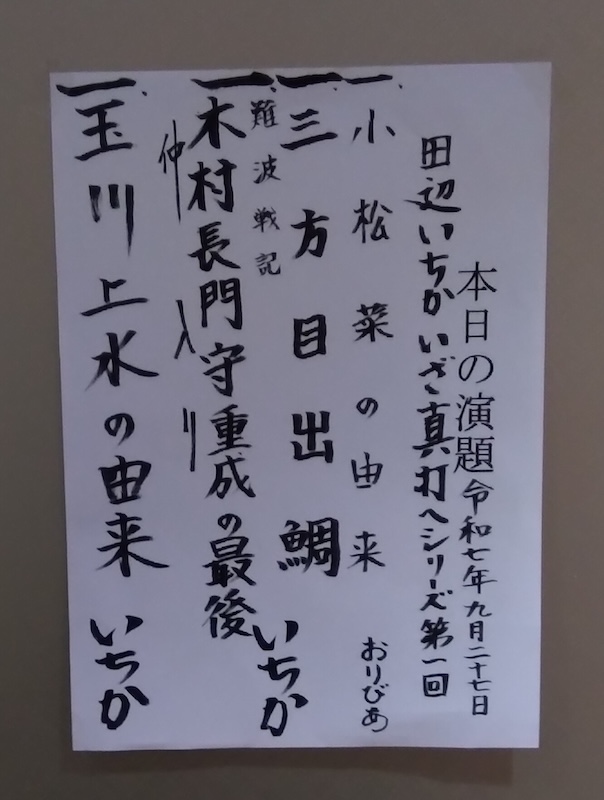 本日の演題 令和七年九月二十七日
田辺いちか いざ真打へシリーズ第一回
一、小松菜の由来 おりびあ
一、三方目出鯛 いちか
難波戦記
一、木村長門守重成の最後
仲入り
一、玉川上水の由来 いちか